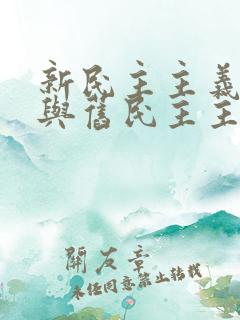 新民主主義
與舊民主主
開友章
未任同意禁止转载